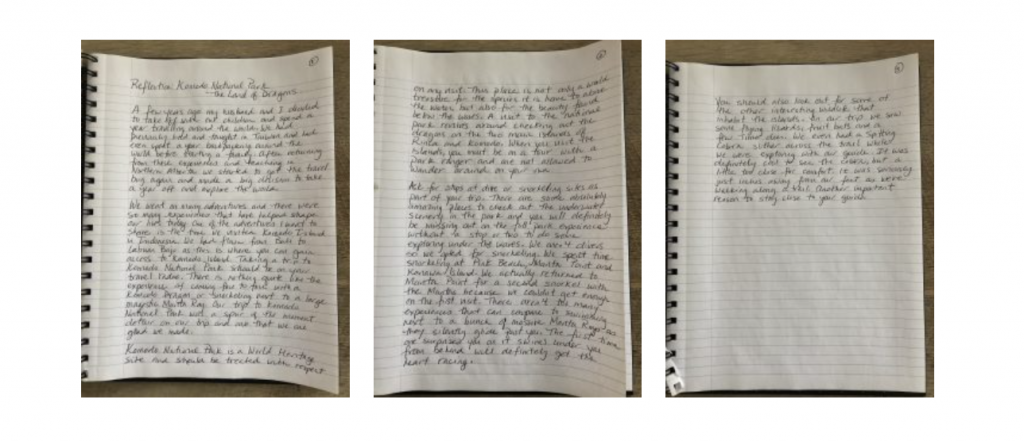 Reflection Komodo National Park
The Land of Dragons
A few years ago my husband and I decided
to take off with our children and spend a
year travelling around the world. We had
previously lived and taught in Taiwan and had
even spent a year backpacking around the
world before starting a family. After returning
from these experiences and teaching in
Northern Alberta we started to get the travel
bug again and made a big decision to take
a year off and explore the world.
We went on many adventures and there were
so many experiences that have helped shape
our lives today. One of the adventures I want to
share is the time we visited Komodo Island
in Indonesia. We had flown from Bali to
Labuan Bajo as this is where you can gain
access to Komodo Island. Taking a trip to
Komodo National Park should be on your
travel radar. There is nothing quite like the
experience of coming face to face with a
Komodo Dragon or snorkeling next to a large
majestic Manta Ray. Our trip to Komodo
National Park was a spur of the moment
detour on our trip and one that we are
glad we made.
Komodo National Park is a World Heritage
Site and should be treated with respect
on any visit. This place is not only a world
treasure for the species it is home to above
the water, but also for the beauty found
below the waves. A visit to the national
park revolves around checking out the
dragons on the two main islands of
Rinca and Komodo. When you visit the
islands, you must be on a tour with a
park ranger and are not allowed to
wander around on your own.
Ask for stops at dive or snorkeling sites as
part of your trip. There are some absolutely
amazing places to check out the underwater
scenery in the park and you will definitely
be missing out on the full park experience
without a stop or two to do some
exploring under the waves. We aren't divers
so we opted for snorkelling. We spent time
snorkeling at Pink Beach, Manta Point and
Kanawa Island. We actually returned to
Manta Point for a second snorkel with
the Mantas because we couldn't get enough
on the first visit. There aren't too many
experiences that can compare to swimming
next to a bunch of massive Manta Rays as
they silently glide past you. The first time
one surprised you as it swims under you
from behind will definitely get the
heart racing.
You should also look out for some of
the other interesting wildlife that
inhabit the islands. On our trip we saw
some flying lizards, fruit bats and a
few Timor deer. We even had a Spitting
Cobra slither across the trail while
we were exploring with our guide. It was
definitely cool to see the cobra, but a
little too close for comfort. It was seriously
just inches away from our feet as we were
walking along a trail. Another important
reason to stay close to your guide.